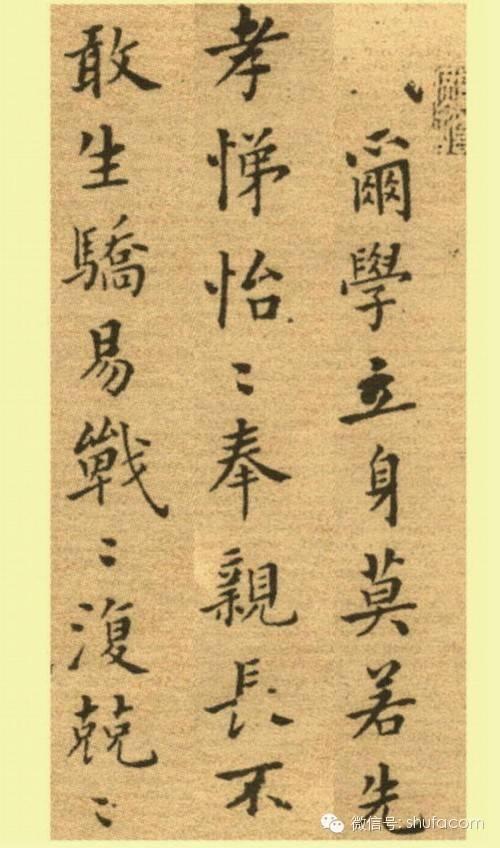 爾學立身莫若先
孝悌怡〻奉親長不
敢生驕易戰〻復兢〻
微信号: shufacom